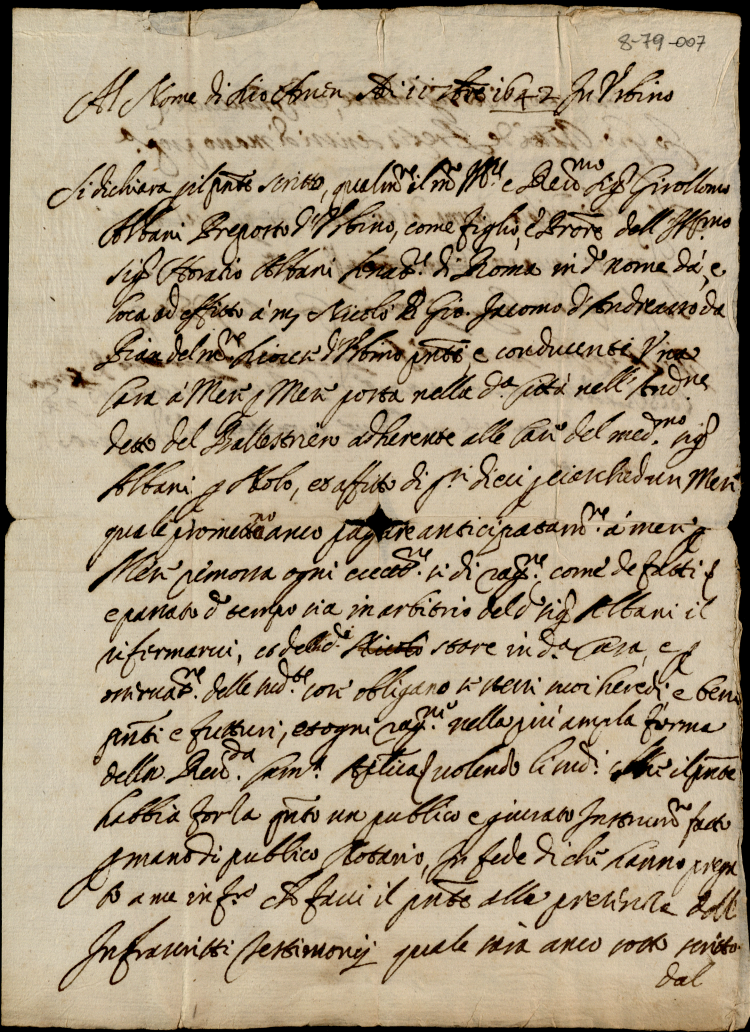 8-79-007
Al Nome di Dio Amen Adi 11 1642 In Urbino
Si dichiara p il pnte scritto, qualmte il Rmo sigr Girollomo
Albani Preposto d'Urbino, come figlio, e Prore dell' Illmo
sigr Horatio Albani Senatre di Roma in do nome dà, e
loca ad effitto à mr Nicolò Gio. Jacomo d'Andreazzo da
d'Urbino pnti e conducenti Una
Casa à Mese p Mese posta nella da Città nell'
detto del Ballestriero adherente alle Case del medmo sigr
Albani p Nolo, et affitto di pli dieci p ciaschedun Mese
quale promettono anco pagare anticipatamte à mese p
Mese remossa ogni eccettne si di ragne, come de fatti
e passato do tempo sia in arbitrio del do sigr Albani il
rifermarsi, et stare in da Casa, e p
osservatne delle mdte cose obligano se stessi suoi heredi e beni
pnti e futturi, et ogni ragne nella più ampla forma
della Revda Camra Aplica volendo li mdi che il pnte
habbia forza pnto un publico e giurato Instrumto fatto
p mano di publico Notario, In fede di che hanno prega
to à me infro ch facci il pnte alla presenza dell
Infrascritti Testimonij quale sarà anco sotto scritto
dal